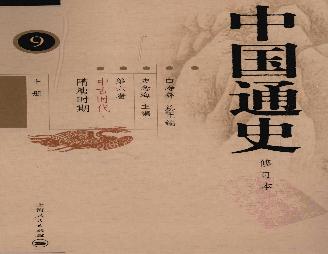 中国通史
修订本
白寿彝 总主编
史念海 主编
第六卷
中古时代
隋唐时期
上册
9
上海人民出版社